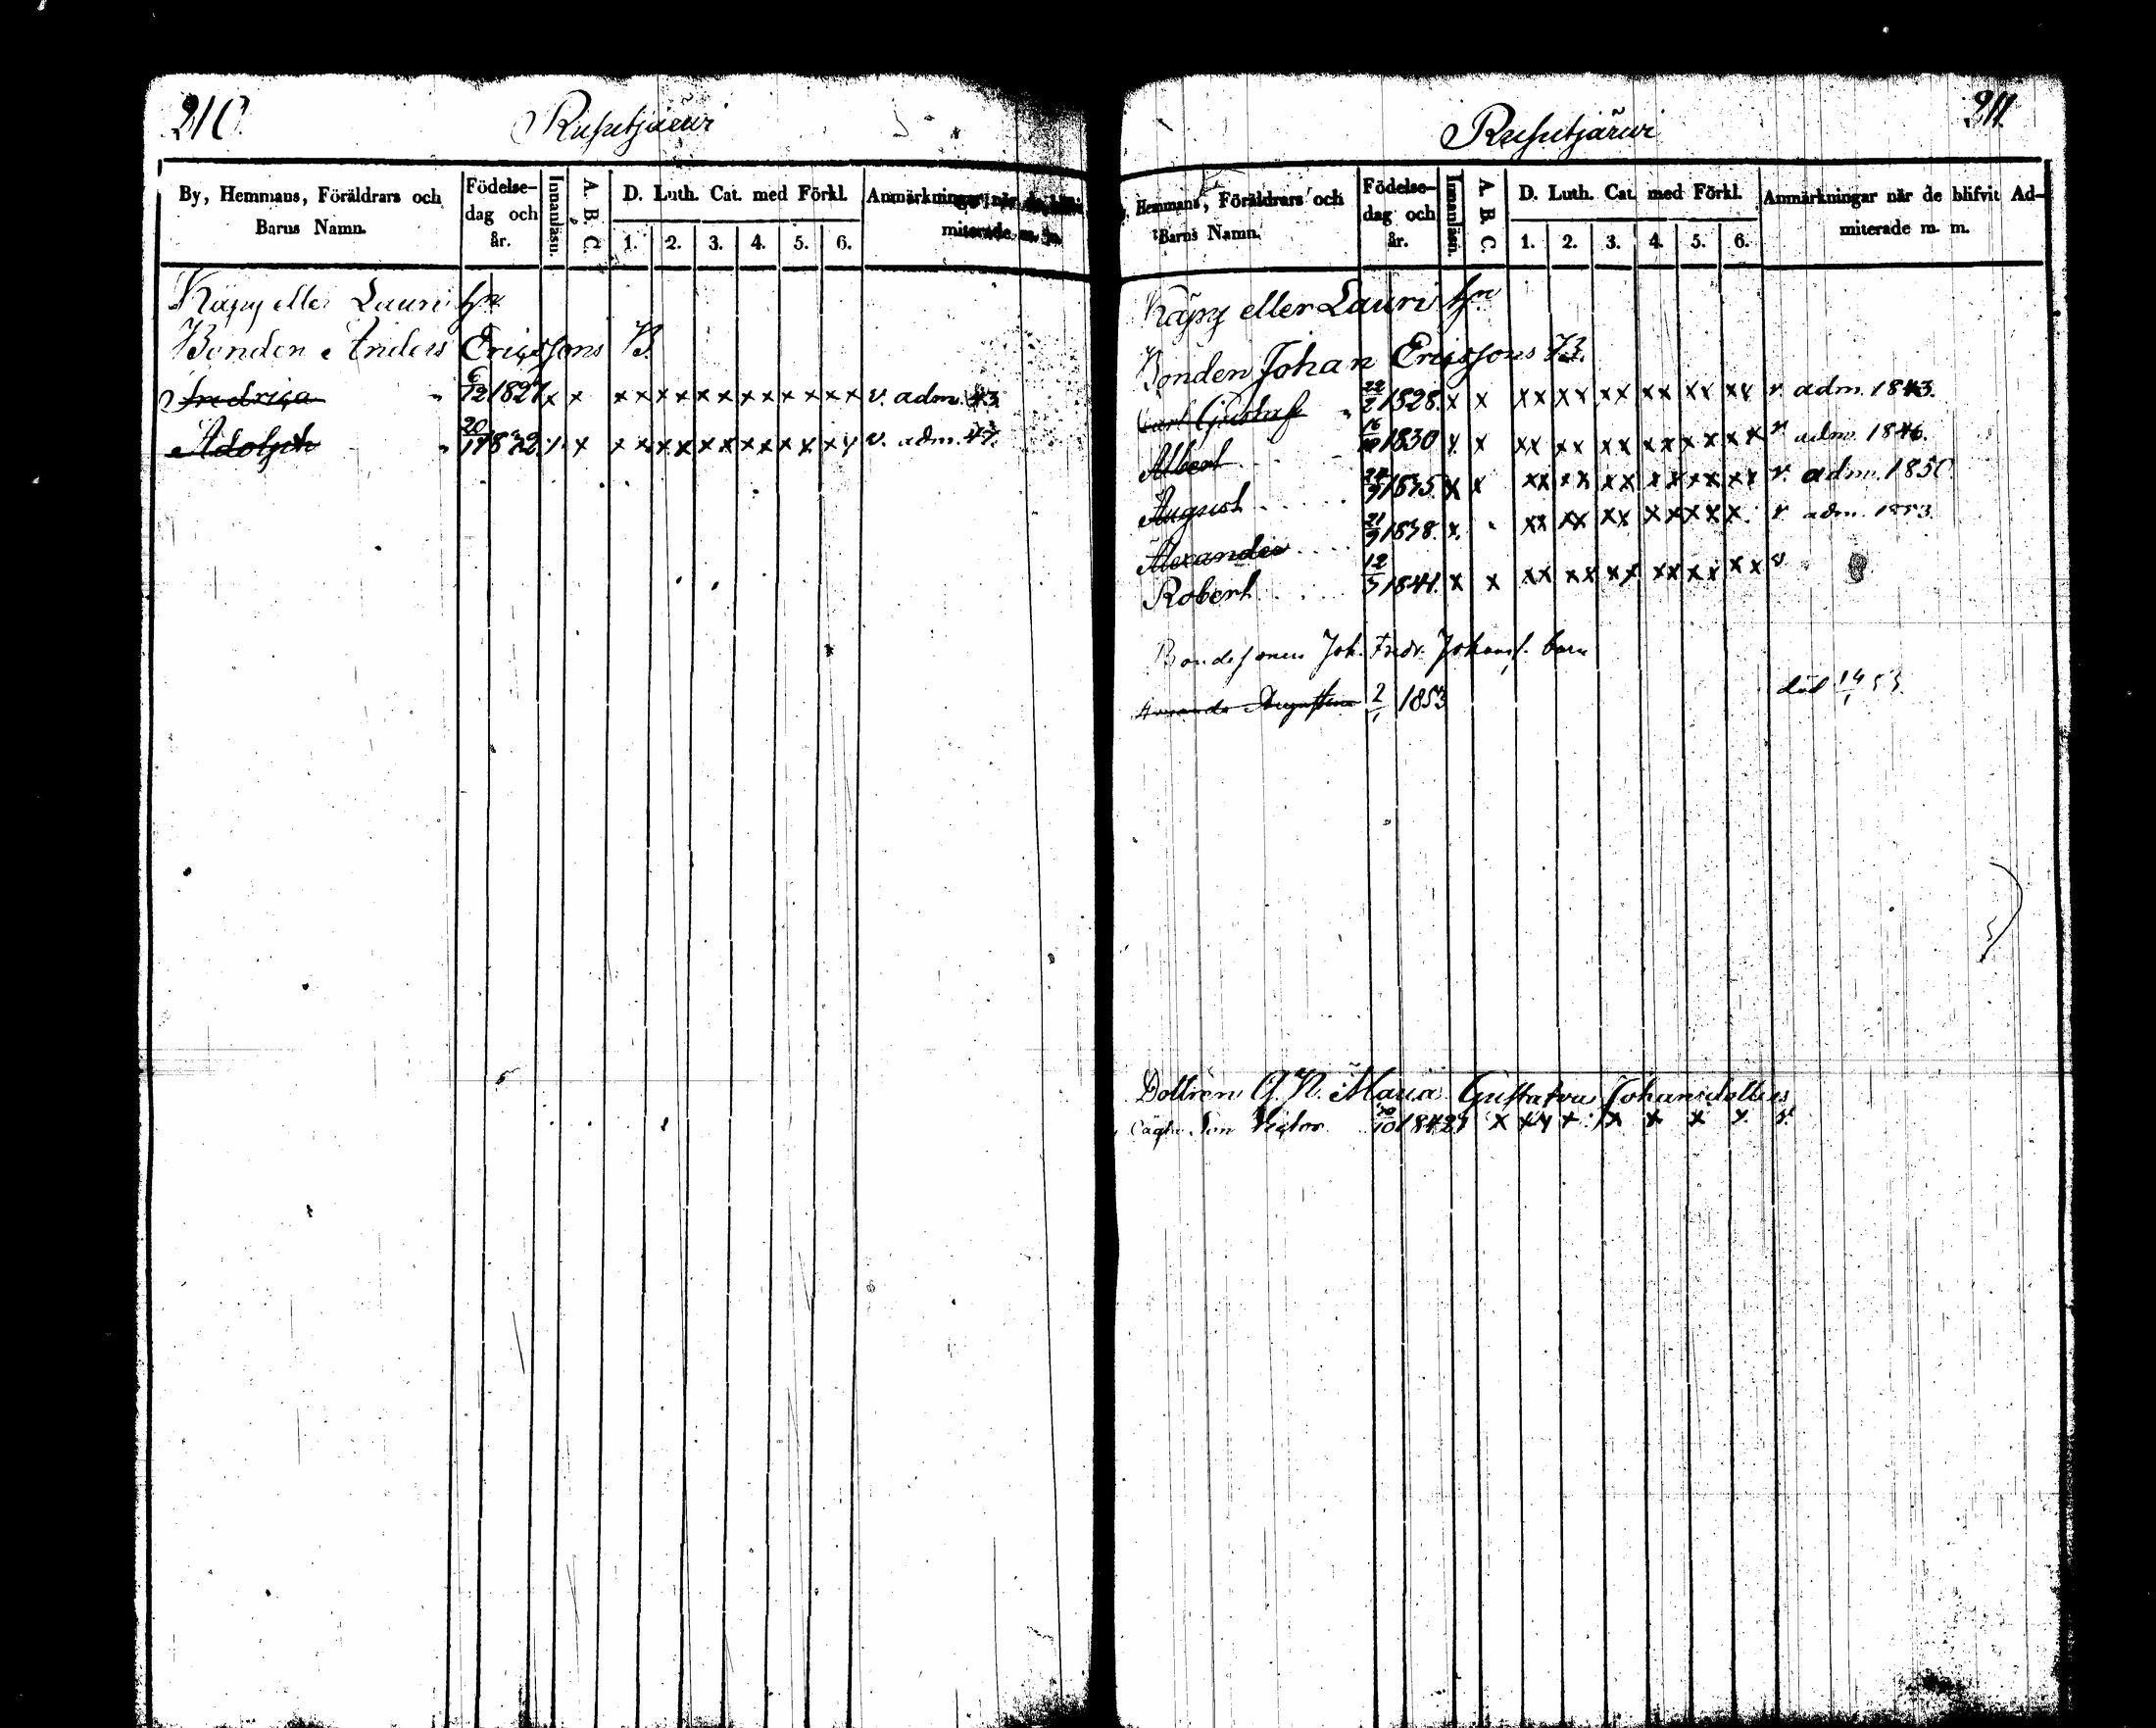 210.
Ruhutjärwi
By, Hemmans, Föräldrars och Barns Namn. Födelse-dag och år. Innanläsn. A. B. C. D. Luth. Cat. med Förkl. 1. 2. 3. 4. 5. 6. Anmärkningar när de miterade m. m.
Käpy eller Lauri hn
Bonden Anders Ericssons B.
Fredrica 6/12 1827 x x x x x x x x x x x x x x v. adm. 43.
Adolph 20 x x x x x x x x x x x x v. adm. 47.
211.
Ruhutjärwi
Hemmans, Föräldrars och Barns Namn. Födelse-dag och år. Innanläsn. A. B. C. D. Luth. Cat. med Förkl. 1. 2. 3. 4. 5. 6. Anmärkningar när de blifvit Ad-miterade m. m.
Käpy eller Lauri hn
Bonden Johan Ericssons B.
Carl Gustaf 22/2 1828. x x xx xx xx xx xx xx v. adm. 1843.
Albert 1830 x x xx xx xx xx xx xx v adm. 1846.
August 1835. x x xx xx xx xx xx xx v. adm. 1850
Alexander 21/9 1838. x. xx xx xx xx xx x. v adm. 1853.
Robert 12/5 1841. x x xx xx xx xx xx xx v
Bondesonen Joh. Fredr. Johans. barn
Amanda Augustina 2/1 1853 död 14/1 53.
Dottren G. N. Maria Gustafva Johansdotters
oägta Son Victor 1842 x x x x x x x